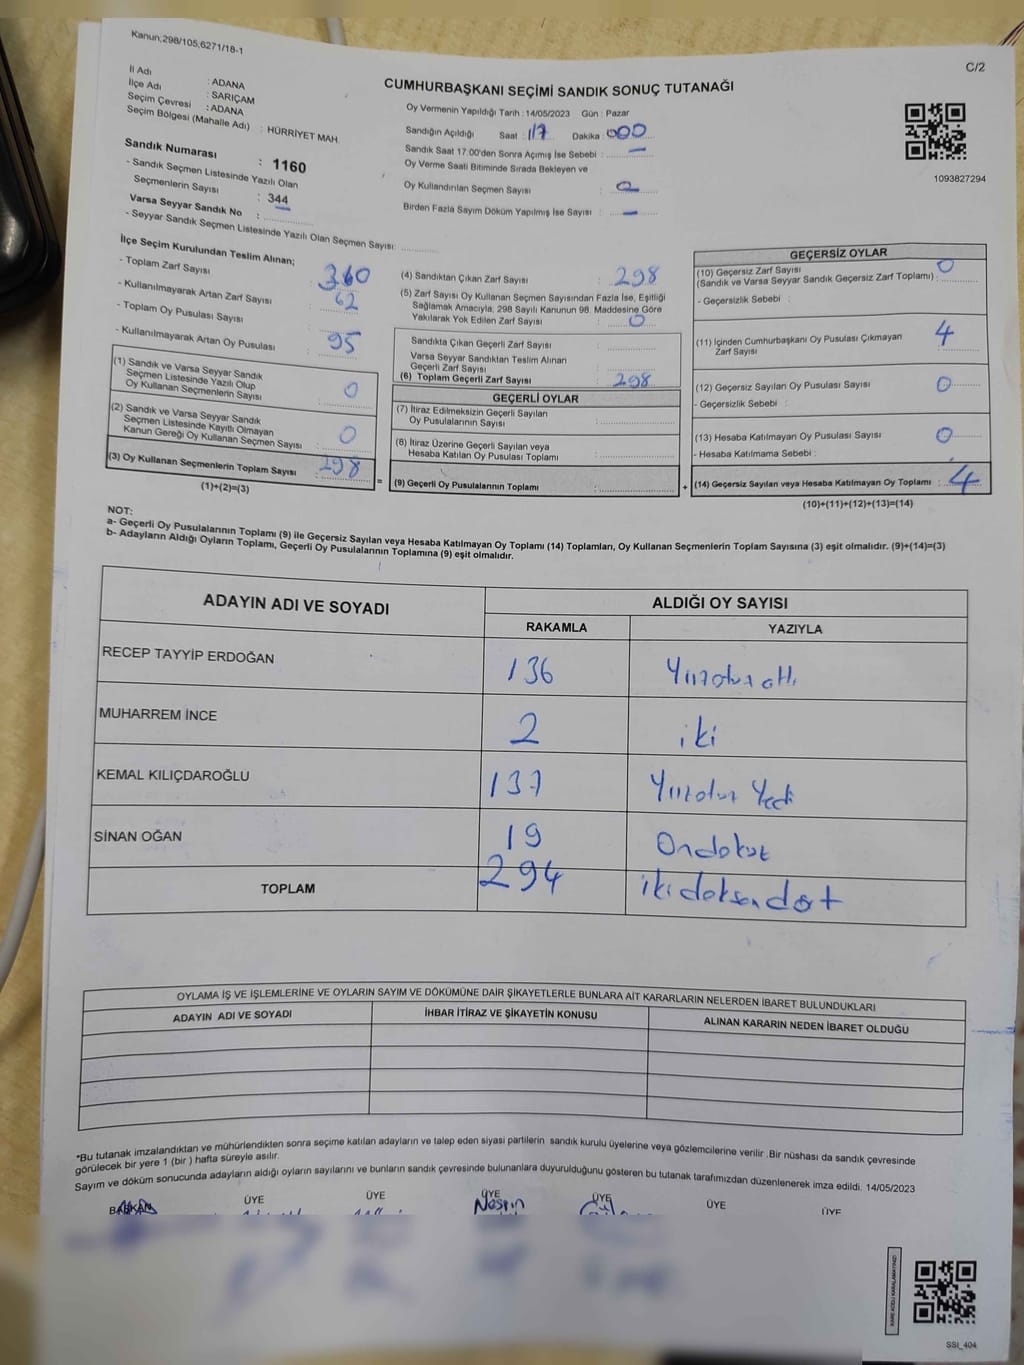 Kanun;298/105,6271/18-1
C/2
CUMHURBAŞKANI SEÇİMİ SANDIK SONUÇ TUTANAĞI
İl Adı : ADANA
İlçe Adı : SARIÇAM
Seçim Çevresi : ADANA
Seçim Bölgesi (Mahalle Adı) : HÜRRİYET MAH.
Sandık Numarası : 1160
- Sandık Seçmen Listesinde Yazılı Olan
Seçmenlerin Sayısı : 344
Varsa Seyyar Sandık No :
- Seyyar Sandık Seçmen Listesinde Yazılı Olan Seçmen Sayısı:
Oy Vermenin Yapıldığı Tarih : 14/05/2023 Gün : Pazar
Sandığın Açıldığı Saat : 17 Dakika : 000
Sandık Saat 17.00'den Sonra Açımış İse Sebebi : —
Oy Verme Saati Bitiminde Sırada Bekleyen ve
Oy Kullandırılan Seçmen Sayısı : 0
Birden Fazla Sayım Döküm Yapılmış İse Sayısı : —
1093827294
İlçe Seçim Kurulundan Teslim Alınan;
- Toplam Zarf Sayısı : 360
- Kullanılmayarak Artan Zarf Sayısı : 62
- Toplam Oy Pusulası Sayısı :
- Kullanılmayarak Artan Oy Pusulası : 95
(1) Sandık ve Varsa Seyyar Sandık
Seçmen Listesinde Yazılı Olup
Oy Kullanan Seçmenlerin Sayısı : 0
(2) Sandık ve Varsa Seyyar Sandık
Seçmen Listesinde Kayıtlı Olmayan
Kanun Gereği Oy Kullanan Seçmen Sayısı : 0
(3) Oy Kullanan Seçmenlerin Toplam Sayısı : 298
(1)+(2)=(3)
(4) Sandıktan Çıkan Zarf Sayısı : 298
(5) Zarf Sayısı Oy Kullanan Seçmen Sayısından Fazla İse, Eşitliği
Sağlamak Amacıyla; 298 Sayılı Kanunun 98. Maddesine Göre
Yakılarak Yok Edilen Zarf Sayısı : 0
Sandıkta Çıkan Geçerli Zarf Sayısı :
Varsa Seyyar Sandıktan Teslim Alınan
Geçerli Zarf Sayısı :
(6) Toplam Geçerli Zarf Sayısı : 298
GEÇERLİ OYLAR
(7) İtiraz Edilmeksizin Geçerli Sayılan
Oy Pusulalarının Sayısı :
(8) İtiraz Üzerine Geçerli Sayılan veya
Hesaba Katılan Oy Pusulası Toplamı :
= (9) Geçerli Oy Pusulalarının Toplamı :
GEÇERSİZ OYLAR
(10) Geçersiz Zarf Sayısı
(Sandık ve Varsa Seyyar Sandık Geçersiz Zarf Toplamı) : 0
- Geçersizlik Sebebi :
(11) İçinden Cumhurbaşkanı Oy Pusulası Çıkmayan
Zarf Sayısı : 4
(12) Geçersiz Sayılan Oy Pusulası Sayısı : 0
- Geçersizlik Sebebi :
(13) Hesaba Katılmayan Oy Pusulası Sayısı : 0
- Hesaba Katılmama Sebebi :
+ (14) Geçersiz Sayılan veya Hesaba Katılmayan Oy Toplamı : 4
(10)+(11)+(12)+(13)=(14)
NOT:
a- Geçerli Oy Pusulalarının Toplamı (9) ile Geçersiz Sayılan veya Hesaba Katılmayan Oy Toplamı (14) Toplamları, Oy Kullanan Seçmenlerin Toplam Sayısına (3) eşit olmalıdır. (9)+(14)=(3)
b- Adayların Aldığı Oyların Toplamı, Geçerli Oy Pusulalarının Toplamına (9) eşit olmalıdır.
ADAYIN ADI VE SOYADI ALDIĞI OY SAYISI
RAKAMLA YAZIYLA
RECEP TAYYİP ERDOĞAN 136 Yüzotuz altı
MUHARREM İNCE 2 iki
KEMAL KILIÇDAROĞLU 137 Yüzotuz Yedi
SİNAN OĞAN 19 Ondokuz
TOPLAM 294 ikidoksandört
OYLAMA İŞ VE İŞLEMLERİNE VE OYLARIN SAYIM VE DÖKÜMÜNE DAİR ŞİKAYETLERLE BUNLARA AİT KARARLARIN NELERDEN İBARET BULUNDUKLARI
ADAYIN ADI VE SOYADI İHBAR İTİRAZ VE ŞİKAYETİN KONUSU ALINAN KARARIN NEDEN İBARET OLDUĞU
*Bu tutanak imzalandıktan ve mühürlendikten sonra seçime katılan adayların ve talep eden siyasi partilerin sandık kurulu üyelerine veya gözlemcilerine verilir .Bir nüshası da sandık çevresinde
görülecek bir yere 1 (bir ) hafta süreyle asılır.
Sayım ve döküm sonucunda adayların aldığı oyların sayılarını ve bunların sandık çevresinde bulunanlara duyurulduğunu gösteren bu tutanak tarafımızdan düzenlenerek imza edildi. 14/05/2023
BAŞKAN ÜYE ÜYE ÜYE ÜYE ÜYE ÜYE
SSI_404